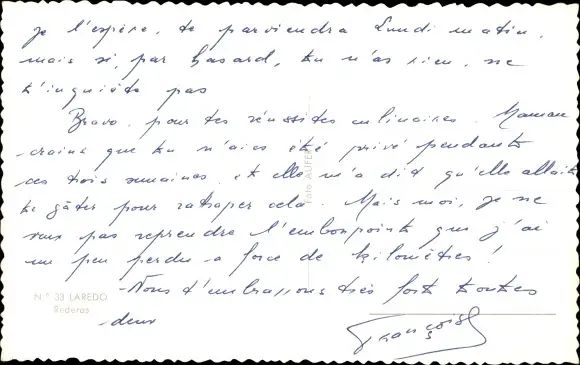 je l'espère, te parviendra Lundi matin,
mais si, par hasard, tu n'as rien, ne
t'inquiète pas
Bravo pour tes réussites culinaires. Maman
craint que tu n'aies été privé pendant
ces trois semaines et elle m'a dit qu'elle allait
te gâter pour ratraper cela. Mais moi, je ne
veux pas reprendre l'embonpoint que j'ai
un peu perdu a force de kilomètres !
Nous t'embrassons très fort toutes
deux
Françoise
Nº 33 LAREDO
Rederas
Foto